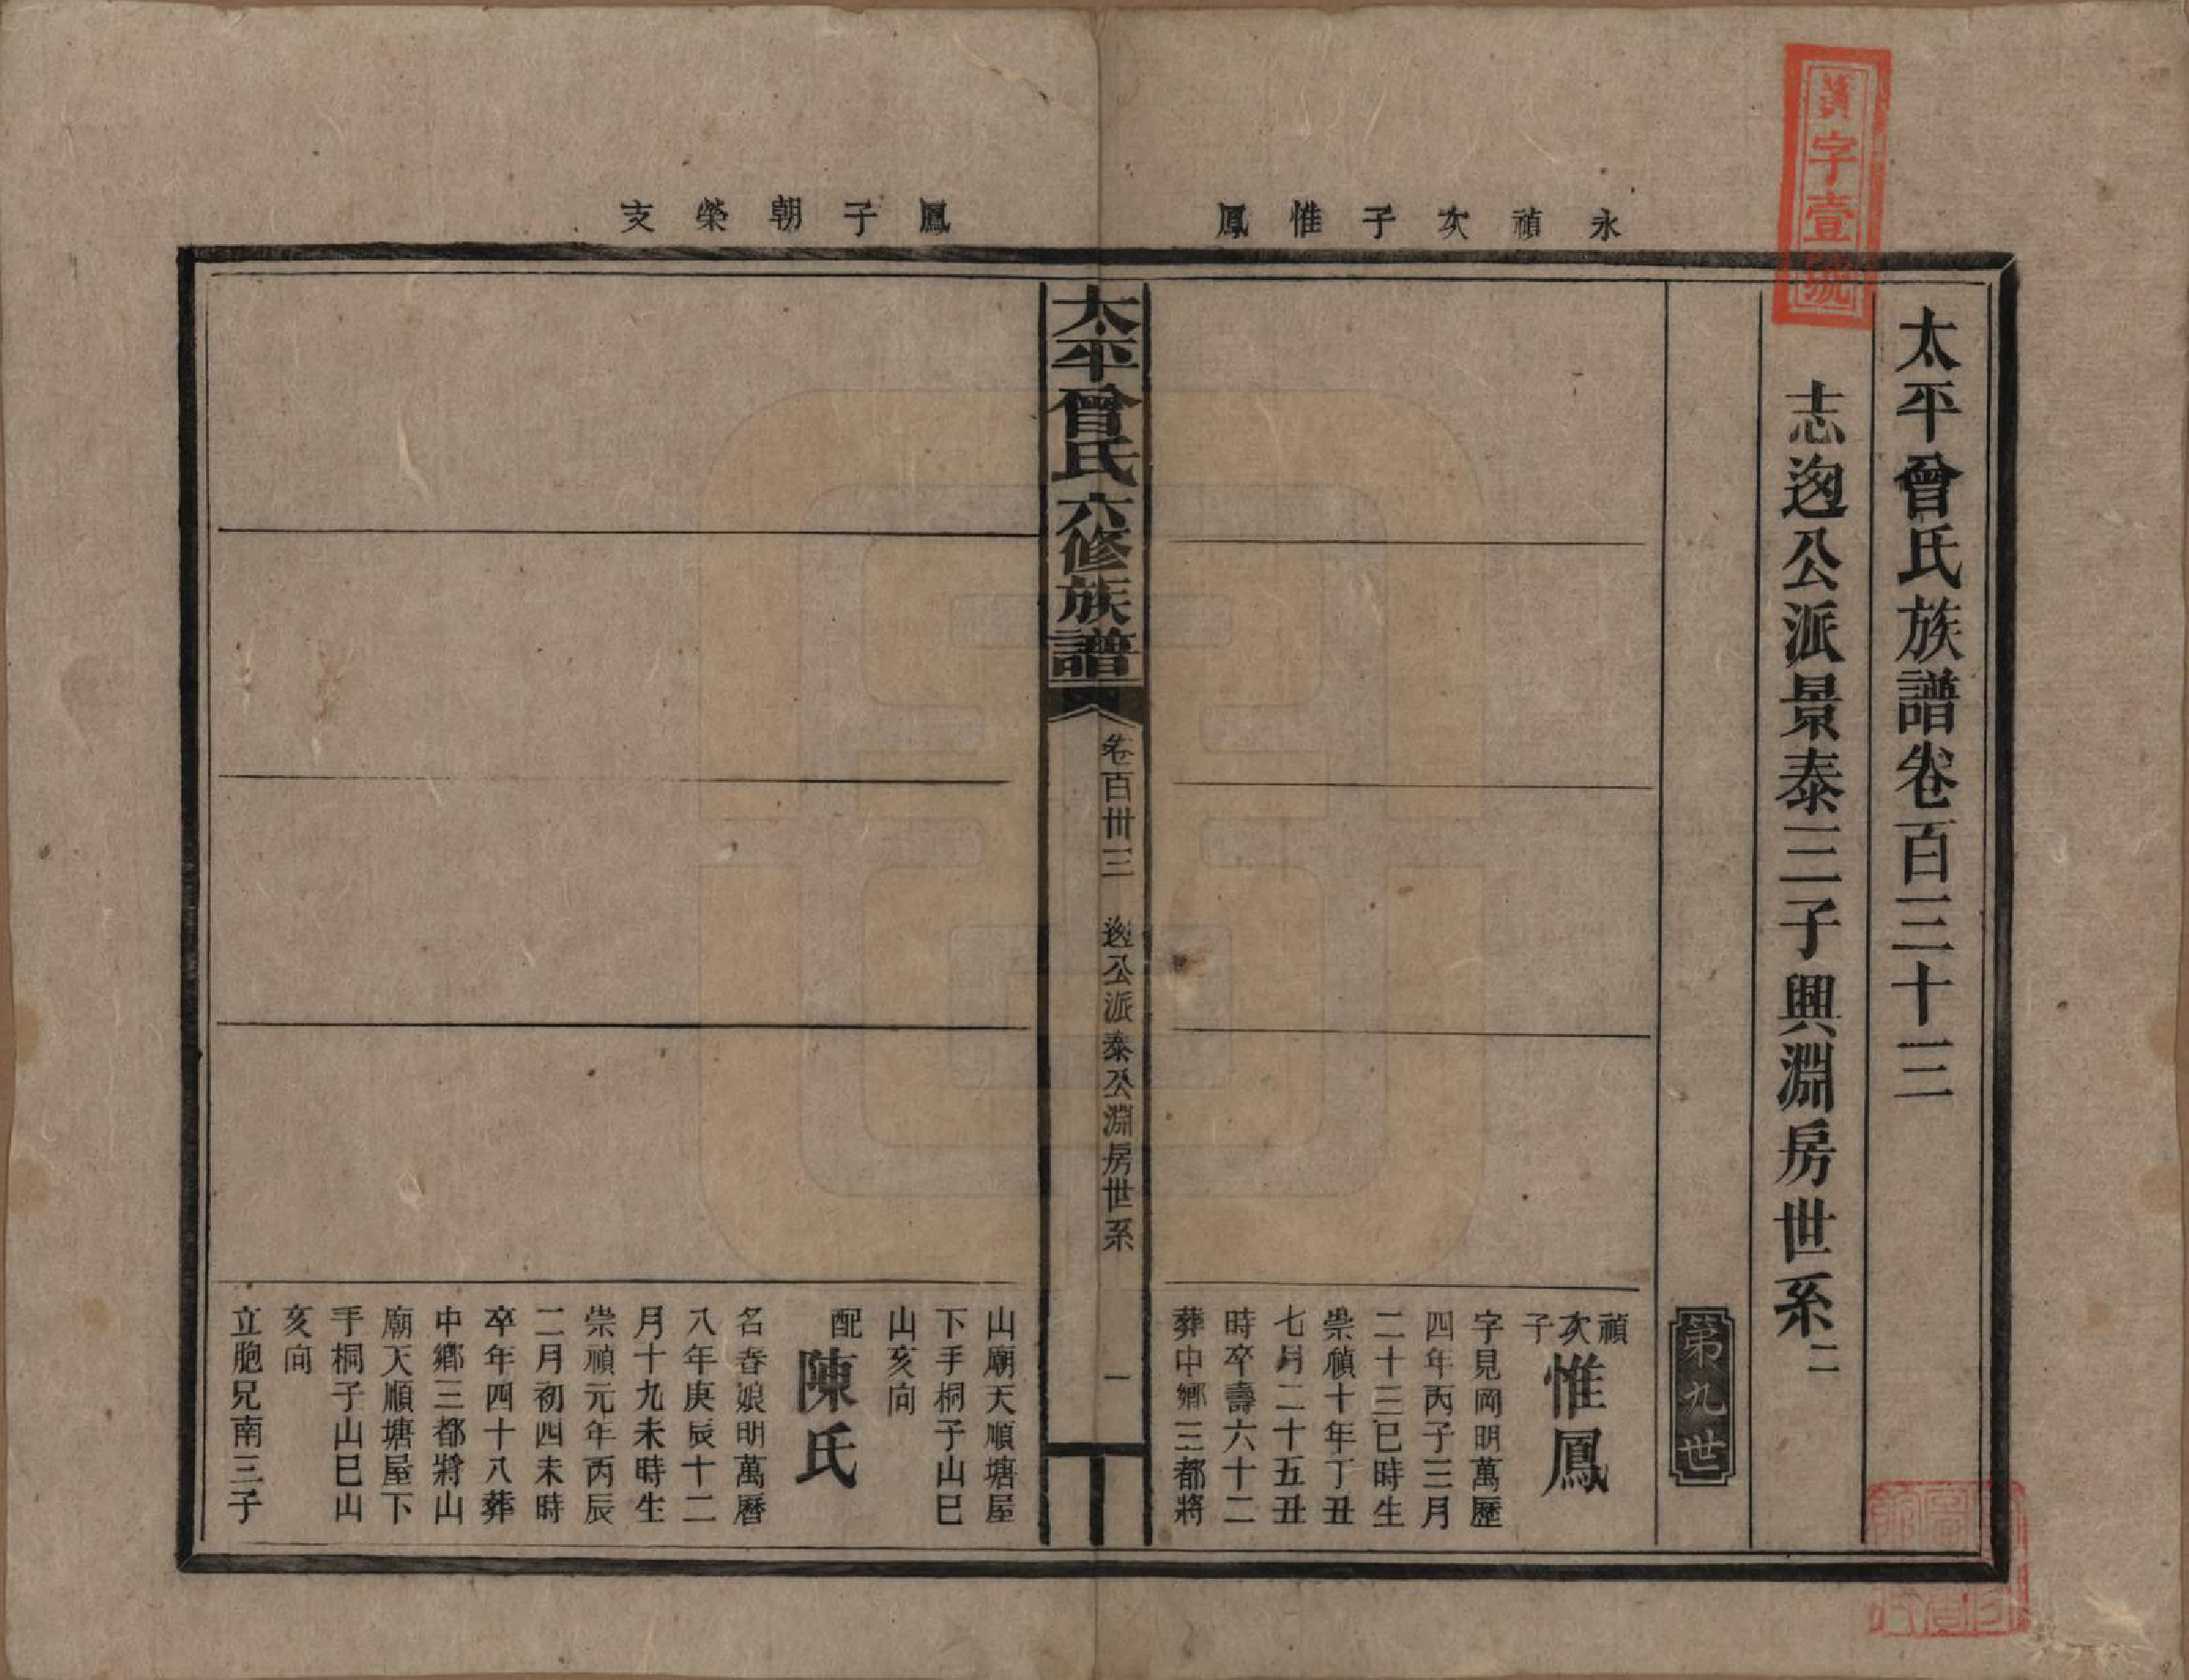 黃字壹號
太平曾氏族譜卷百三十三
志逸公派景泰三子興淵房世系二
第九世
永禎次子惟鳳
禎次子惟鳳
字見岡明萬歷
四年丙子三月
二十三巳時生
崇禎十年丁丑
七月二十五丑
時卒壽六十二
葬中鄉三都將
太平曾氏六修族譜
卷百卅三 逸公派泰公淵房世系 一
鳳子朝榮支
山廟天順塘屋
下手桐子山巳
山亥向
配陳氏
名春娘明萬曆
八年庚辰十二
月十九未時生
崇禎元年丙辰
二月初四未時
卒年四十八葬
中鄉三都將山
廟天順塘屋下
手桐子山巳山
亥向
立胞兄南三子